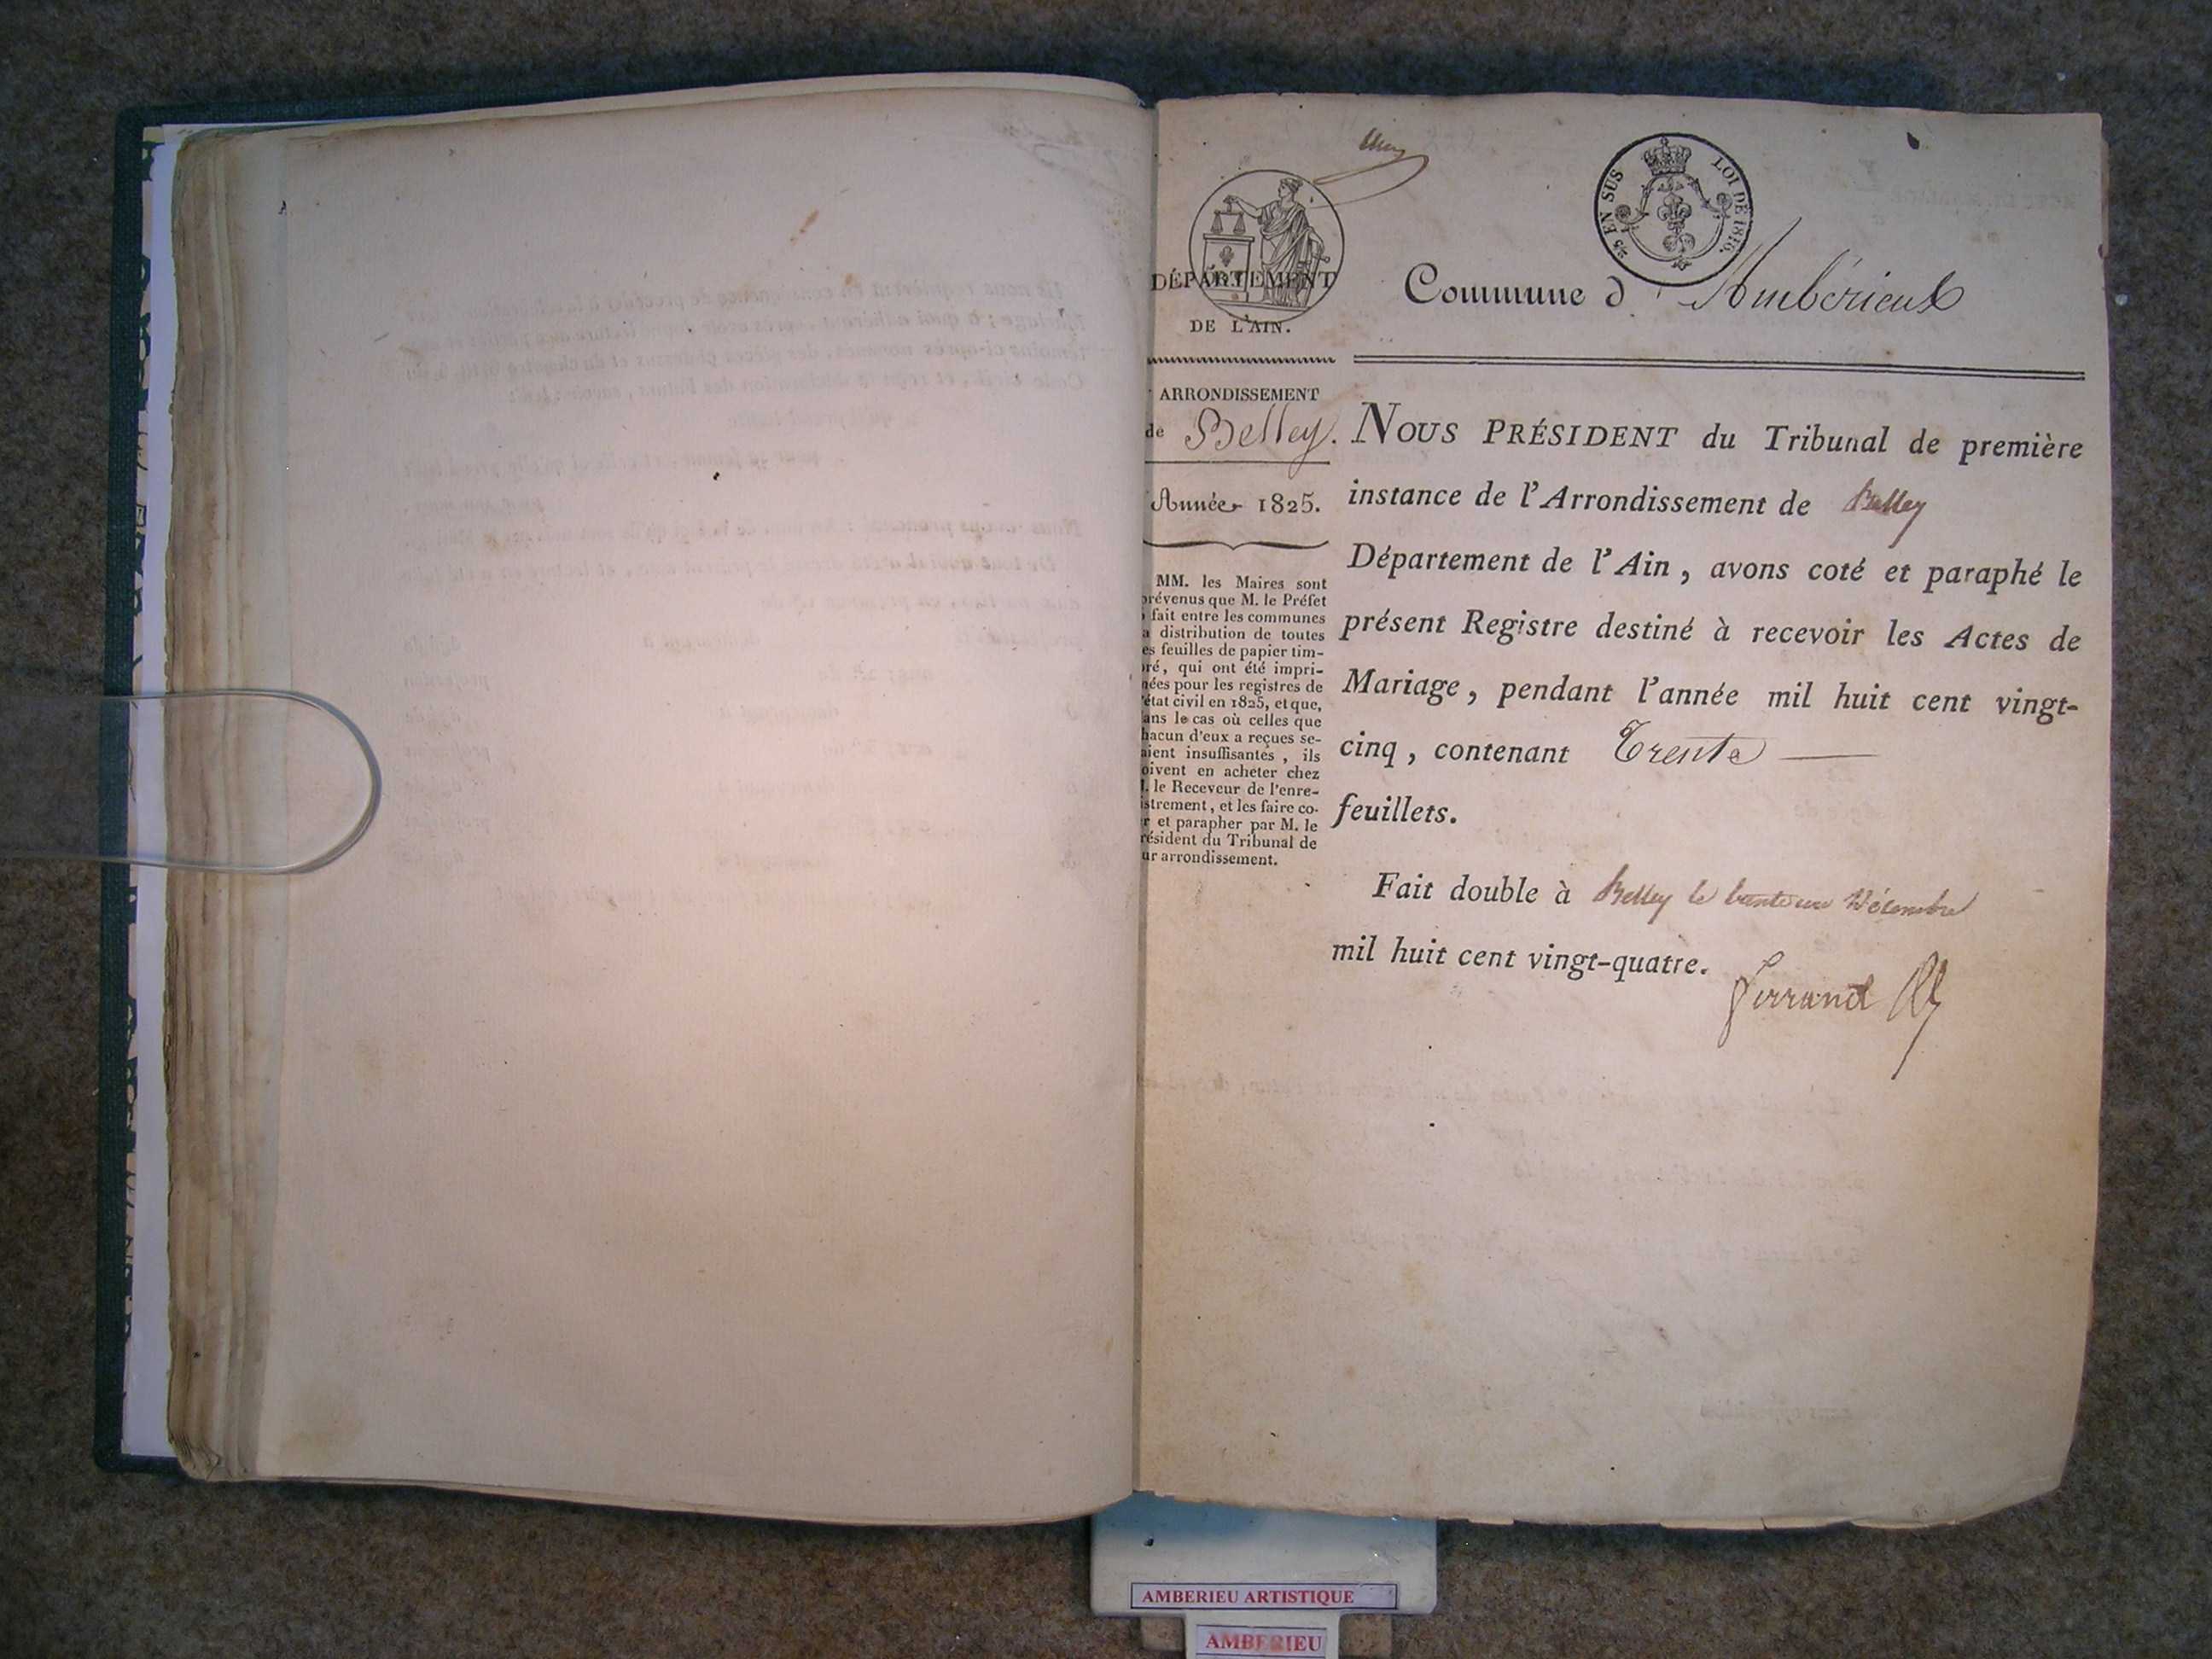 25 EN SUS LOI DE 1816.
DÉPARTEMENT
DE L'AIN.
Commune d'Ambérieux
ARRONDISSEMENT
de Belley.
Année 1825.
MM. les Maires sont
prévenus que M. le Préfet
fait entre les communes
distribution de toutes
es feuilles de papier tim-
ré, qui ont été impri-
ées pour les registres de
état civil en 1825, et que,
ans le cas où celles que
hacun d'eux a reçues se-
aient insuffisantes, ils
oivent en acheter chez
. le Receveur de l'enre-
istrement, et les faire co-
r et parapher par M. le
résident du Tribunal de
ur arrondissement.
NOUS PRÉSIDENT du Tribunal de première
instance de l'Arrondissement de Belley
Département de l'Ain, avons coté et paraphé le
présent Registre destiné à recevoir les Actes de
Mariage, pendant l'année mil huit cent vingt-
cinq, contenant Trente
feuillets.
Fait double à Belley le trente un Décembre
mil huit cent vingt-quatre.
AMBERIEU ARTISTIQUE
AMBERIEU